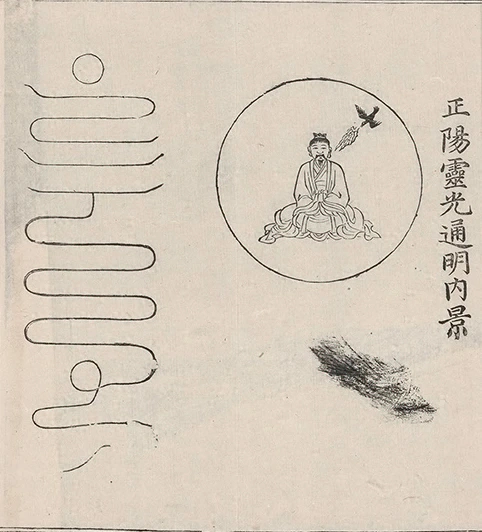 正陽靈光通明内景